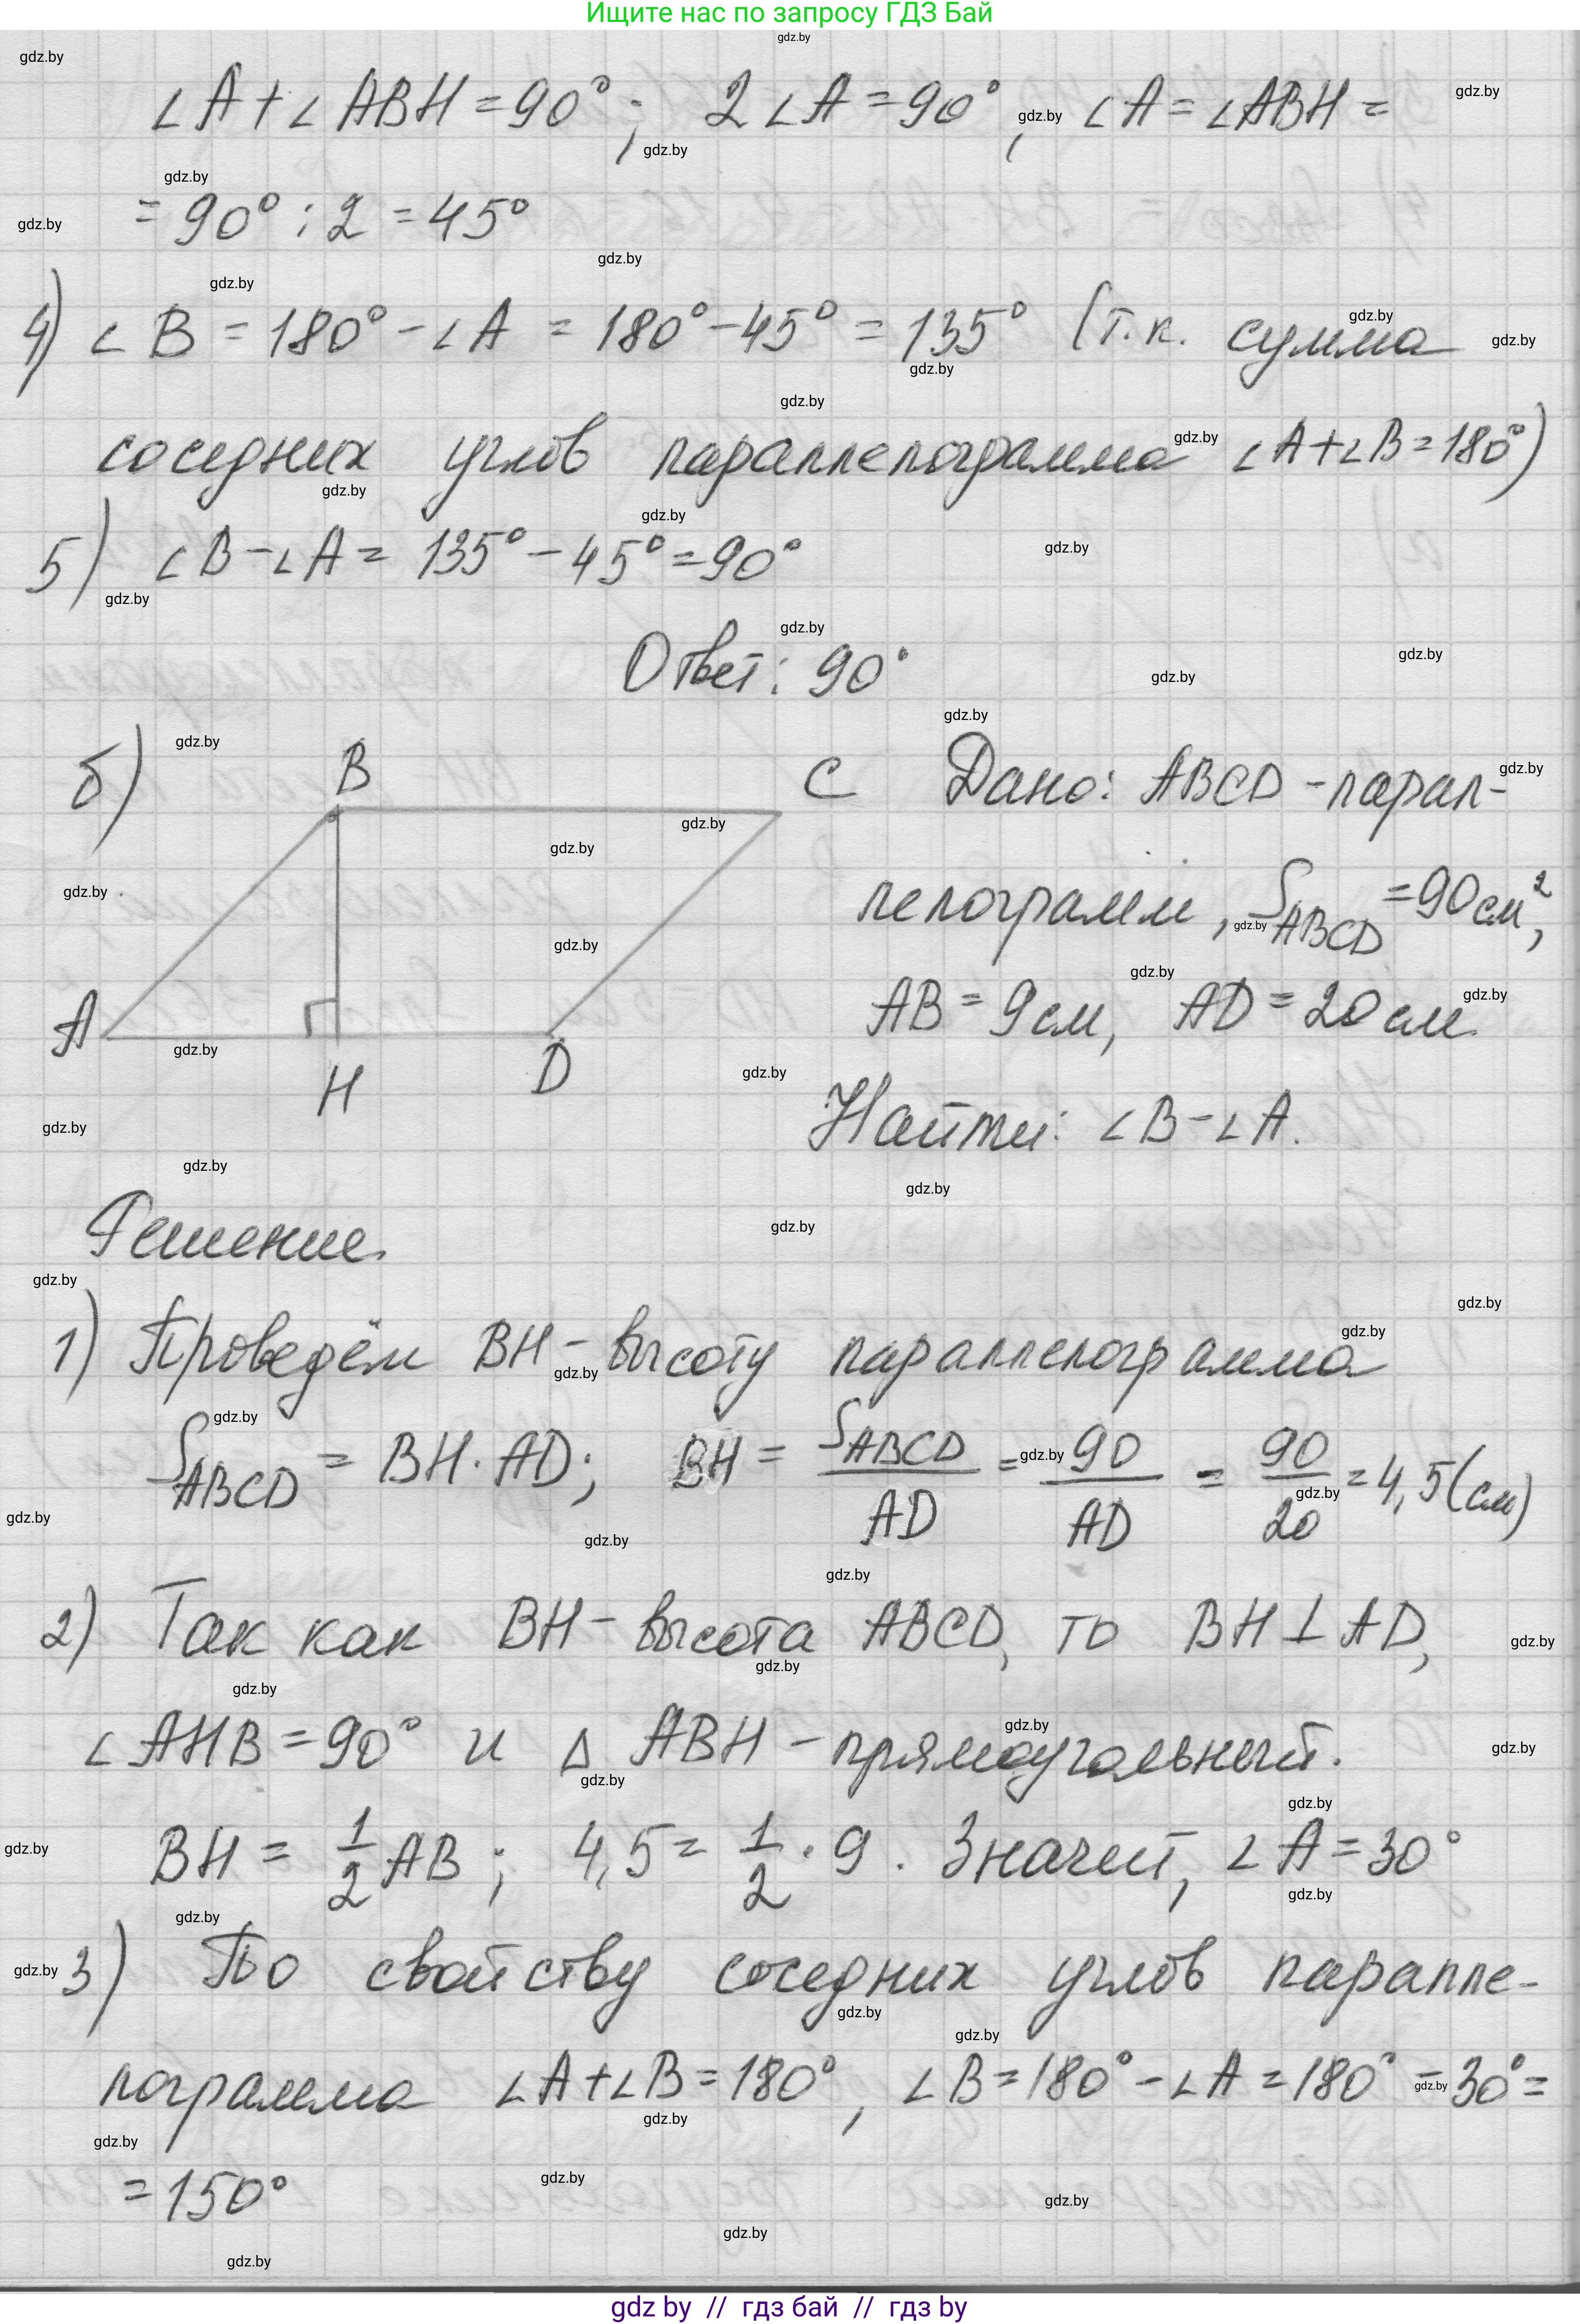 Ищите нас по запросу ГДЗ Бай
∠A+∠ABH=90°; 2∠A=90°, ∠A=∠ABH=
=90°:2=45°
4) ∠B=180°-∠A=180°-45°=135° (т.к. сумма
соседних углов параллелограмма ∠A+∠B=180°)
5) ∠B-∠A=135°-45°=90°
Ответ: 90°
б) B C A H D
Дано: ABCD-парал-
лелограмм, S_ABCD=90см²,
AB=9см, AD=20см.
Найти: ∠B-∠A.
Решение.
1) Проведём BH-высоту параллелограмма
S_ABCD=BH·AD; BH=S_ABCD/AD=90/AD=90/20=4,5(см)
2) Так как BH-высота ABCD, то BH⊥AD,
∠AHB=90° и △ABH-прямоугольный.
BH=1/2AB; 4,5=1/2·9. Значит, ∠A=30°
3) По свойству соседних углов паралле-
лограмма ∠A+∠B=180°, ∠B=180°-∠A=180°-30°=
=150°
gdz by // гдз бай // гдз by